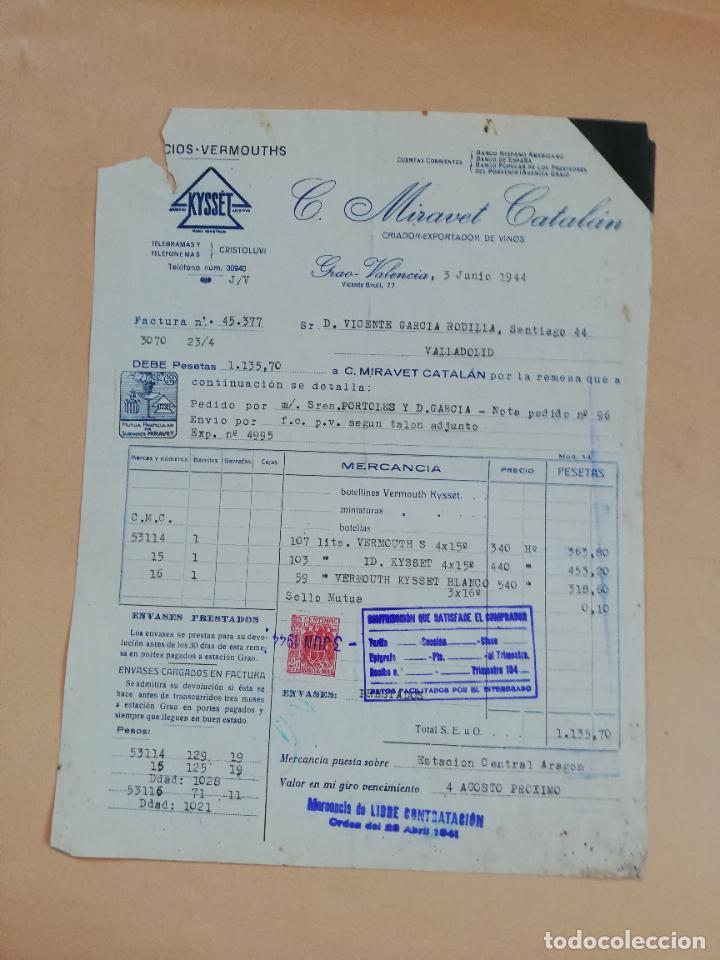 CIOS-VERMOUTHS
KYSSÉT
MARCA REGISTRADA
TELEGRAMAS Y
TELEFONEMAS
CRISTOLUVI
Teléfono núm. 30940
J/V
CUENTAS CORRIENTES
BANCO HISPANO AMERICANO
BANCO DE ESPAÑA
BANCO POPULAR DE LOS PREVISORES
DEL PORVENIR (AGENCIA GRAO)
C. Miravet Catalán
CRIADOR-EXPORTADOR DE VINOS
Grao-Valencia, 3 Junio 1944
Vicente Brull, 77
Factura n.º 45.377
3070 23/4
Sr D. VICENTE GARCIA RODILLA, Santiago 44
VALLADOLID
DEBE Pesetas 1.135,70 a C. MIRAVET CATALÁN por la remesa que a
continuación se detalla:
MUTUA PARTICULAR
DE
SUBSIDIOS MIRAVET
Pedido por m/. Sres. PORTOLES Y D. GARCIA - Nota pedido nº 96
Envío por f.c. p.v. segun talon adjunto
Exp. nº 4995
Mod. 14
Marcas y números Barriles Garrafas Cajas MERCANCIA PRECIO PESETAS
botellines Vermouth Kyssét.
miniaturas " "
C.M.C. botellas
53114 1 107 lits. VERMOUTH S 4x15º 340 Hº 363,80
15 1 103 " ID. KYSSET 4x15º 440 " 453,20
16 1 59 " VERMOUTH KYSSET BLANCO 540 " 318,60
3x16º
Sello Mutua 0,10
25 CENTIMOS
3 JUN 1944
CONTRIBUCIÓN QUE SATISFACE EL COMPRADOR
Tarifa Sección Clase
Epígrafe Pts. al Trimestre.
Recibo n.º Trimestre 194
DATOS FACILITADOS POR EL INTERESADO
ENVASES: PRESTADOS
ENVASES PRESTADOS
Los envases se prestan para su devo-
lución antes de los 30 días de esta reme
sa en portes pagados a estación Grao.
ENVASES CARGADOS EN FACTURA
Se admitirá su devolución si ésta se
hace antes de transcurridos tres meses
a estación Grao en portes pagados y
siempre que lleguen en buen estado.
Pesos:
53114 129 19
15 125 19
Ddad: 1028
53116 71 11
Ddad: 1021
Total S. E. u O. 1.135,70
Mercancía puesta sobre Estacion Central Aragon
Valor en mi giro vencimiento 4 AGOSTO PROXIMO
Mercancía de LIBRE CONTRATACIÓN
Orden del 28 Abril 1941
todocoleccion
todocoleccion.net